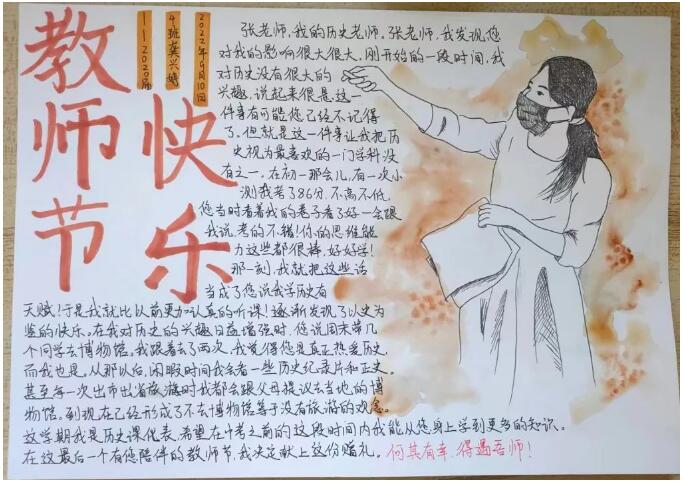 教师节
快乐
2022年9月10日
4班龚兴婷
112020届
张老师,我的历史老师。张老师,我发现,您
对我的影响很大很大。刚开始的一段时间,我
对历史没有很大的
兴趣,说起来很是,这一
件事有可能您已经不记得
了。但就是这一件事让我把历
史视为最喜欢的一门学科没
有之一。在初一那会儿,有一次小
测我考了86分,不高不低,
您当时看着我的卷子看了好一会跟
我说:考的不错!你的思维能
力这些都很棒,好好学!
那一刻,我就把这些话
当成了您说我学历史有
天赋!于是我就比以前更加认真的听课!逐渐发现了以史为
鉴的快乐。在我对历史的兴趣日益增强时,您说周末带几
个同学去博物馆。我跟着去了两次,我觉得您是真正热爱历史,
而我也是。从那以后,闲暇时间我会看一些历史纪录片和正史。
甚至每一次出市出省旅游时我都会跟父母提议去当地的博
物馆。到现在已经形成了不去博物馆等于没有旅游的观念。
这学期我是历史课代表,希望在中考之前的这段时间内我能从您身上学到更多的知识。
在这最后一个有您陪伴的教师节,我决定献上这份赠礼。何其有幸,得遇吾师!